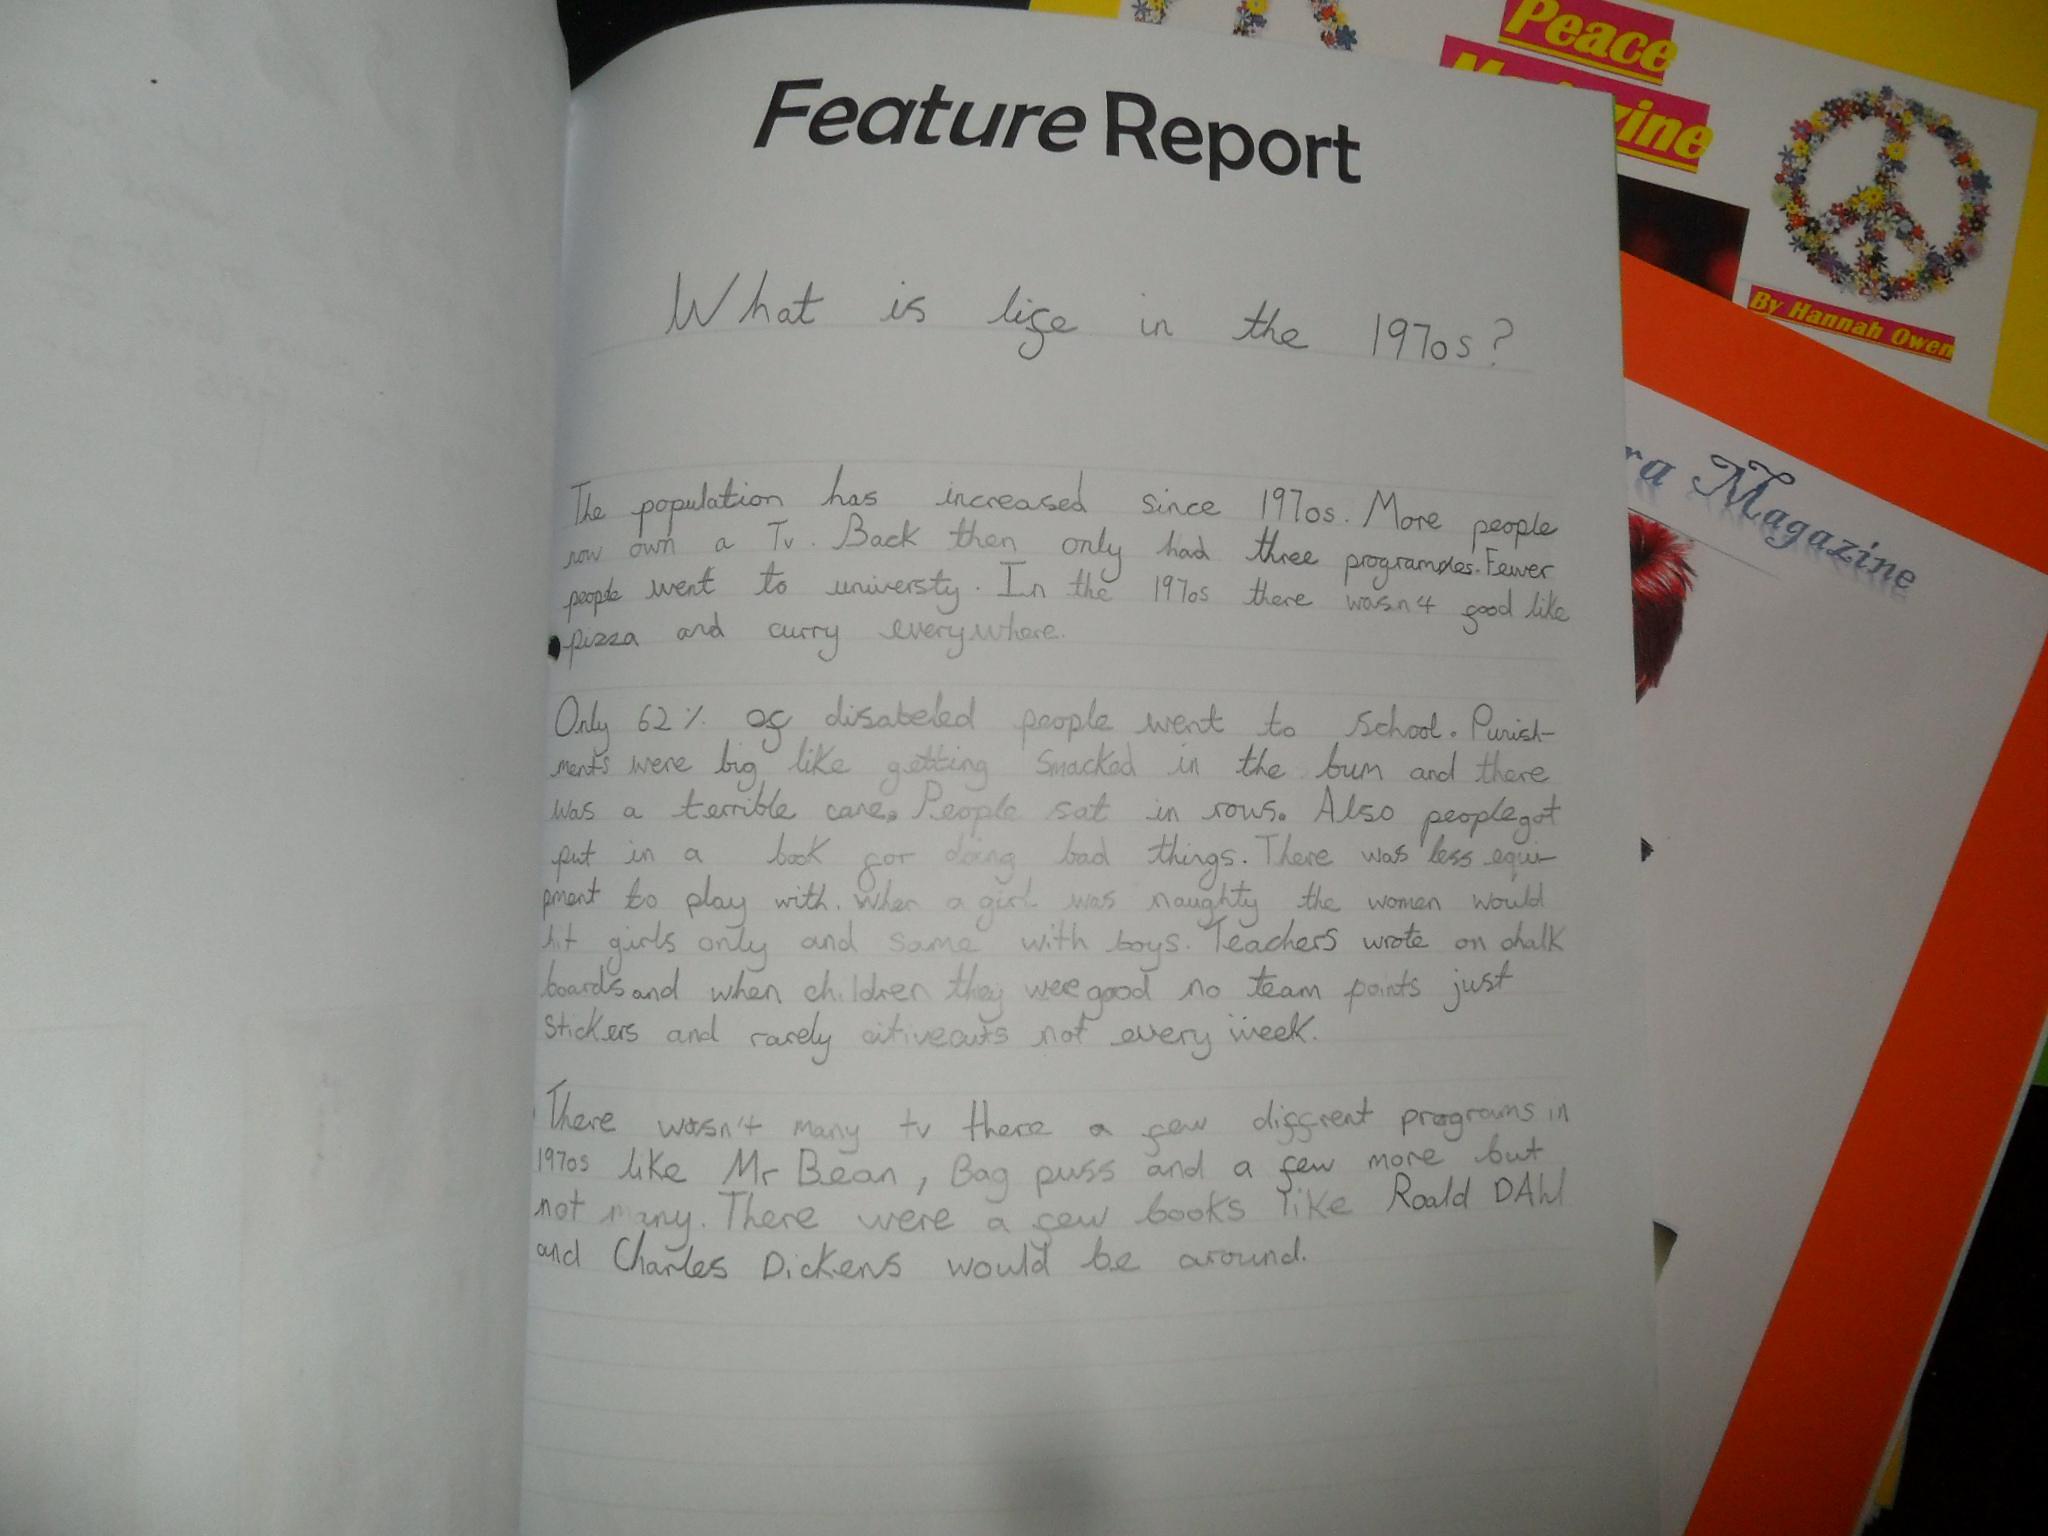 Feature Report
What is life in the 1970s?
The population has increased since 1970s. More people
now own a Tv. Back then only had three programmes. Fewer
people went to universty. In the 1970s there wasn't good like
pizza and curry everywhere.
Only 62% of disabeled people went to school. Punish-
ments were big like getting smacked in the bum and there
was a terrible cane. People sat in rows. Also people got
put in a book for doing bad things. There was less equi-
pment to play with. When a girl was naughty the women would
hit girls only and same with boys. Teachers wrote on chalk
boards and when children they wee good no team points just
stickers and rarely not every week.
There wasn't many tv there a few diffrent programs in
1970s like Mr Bean, Bag puss and a few more but
not many. There were a few books like Roald DAhl
and Charles Dickens would be around.
Peace
zine
By Hannah Owen
ra Magazine